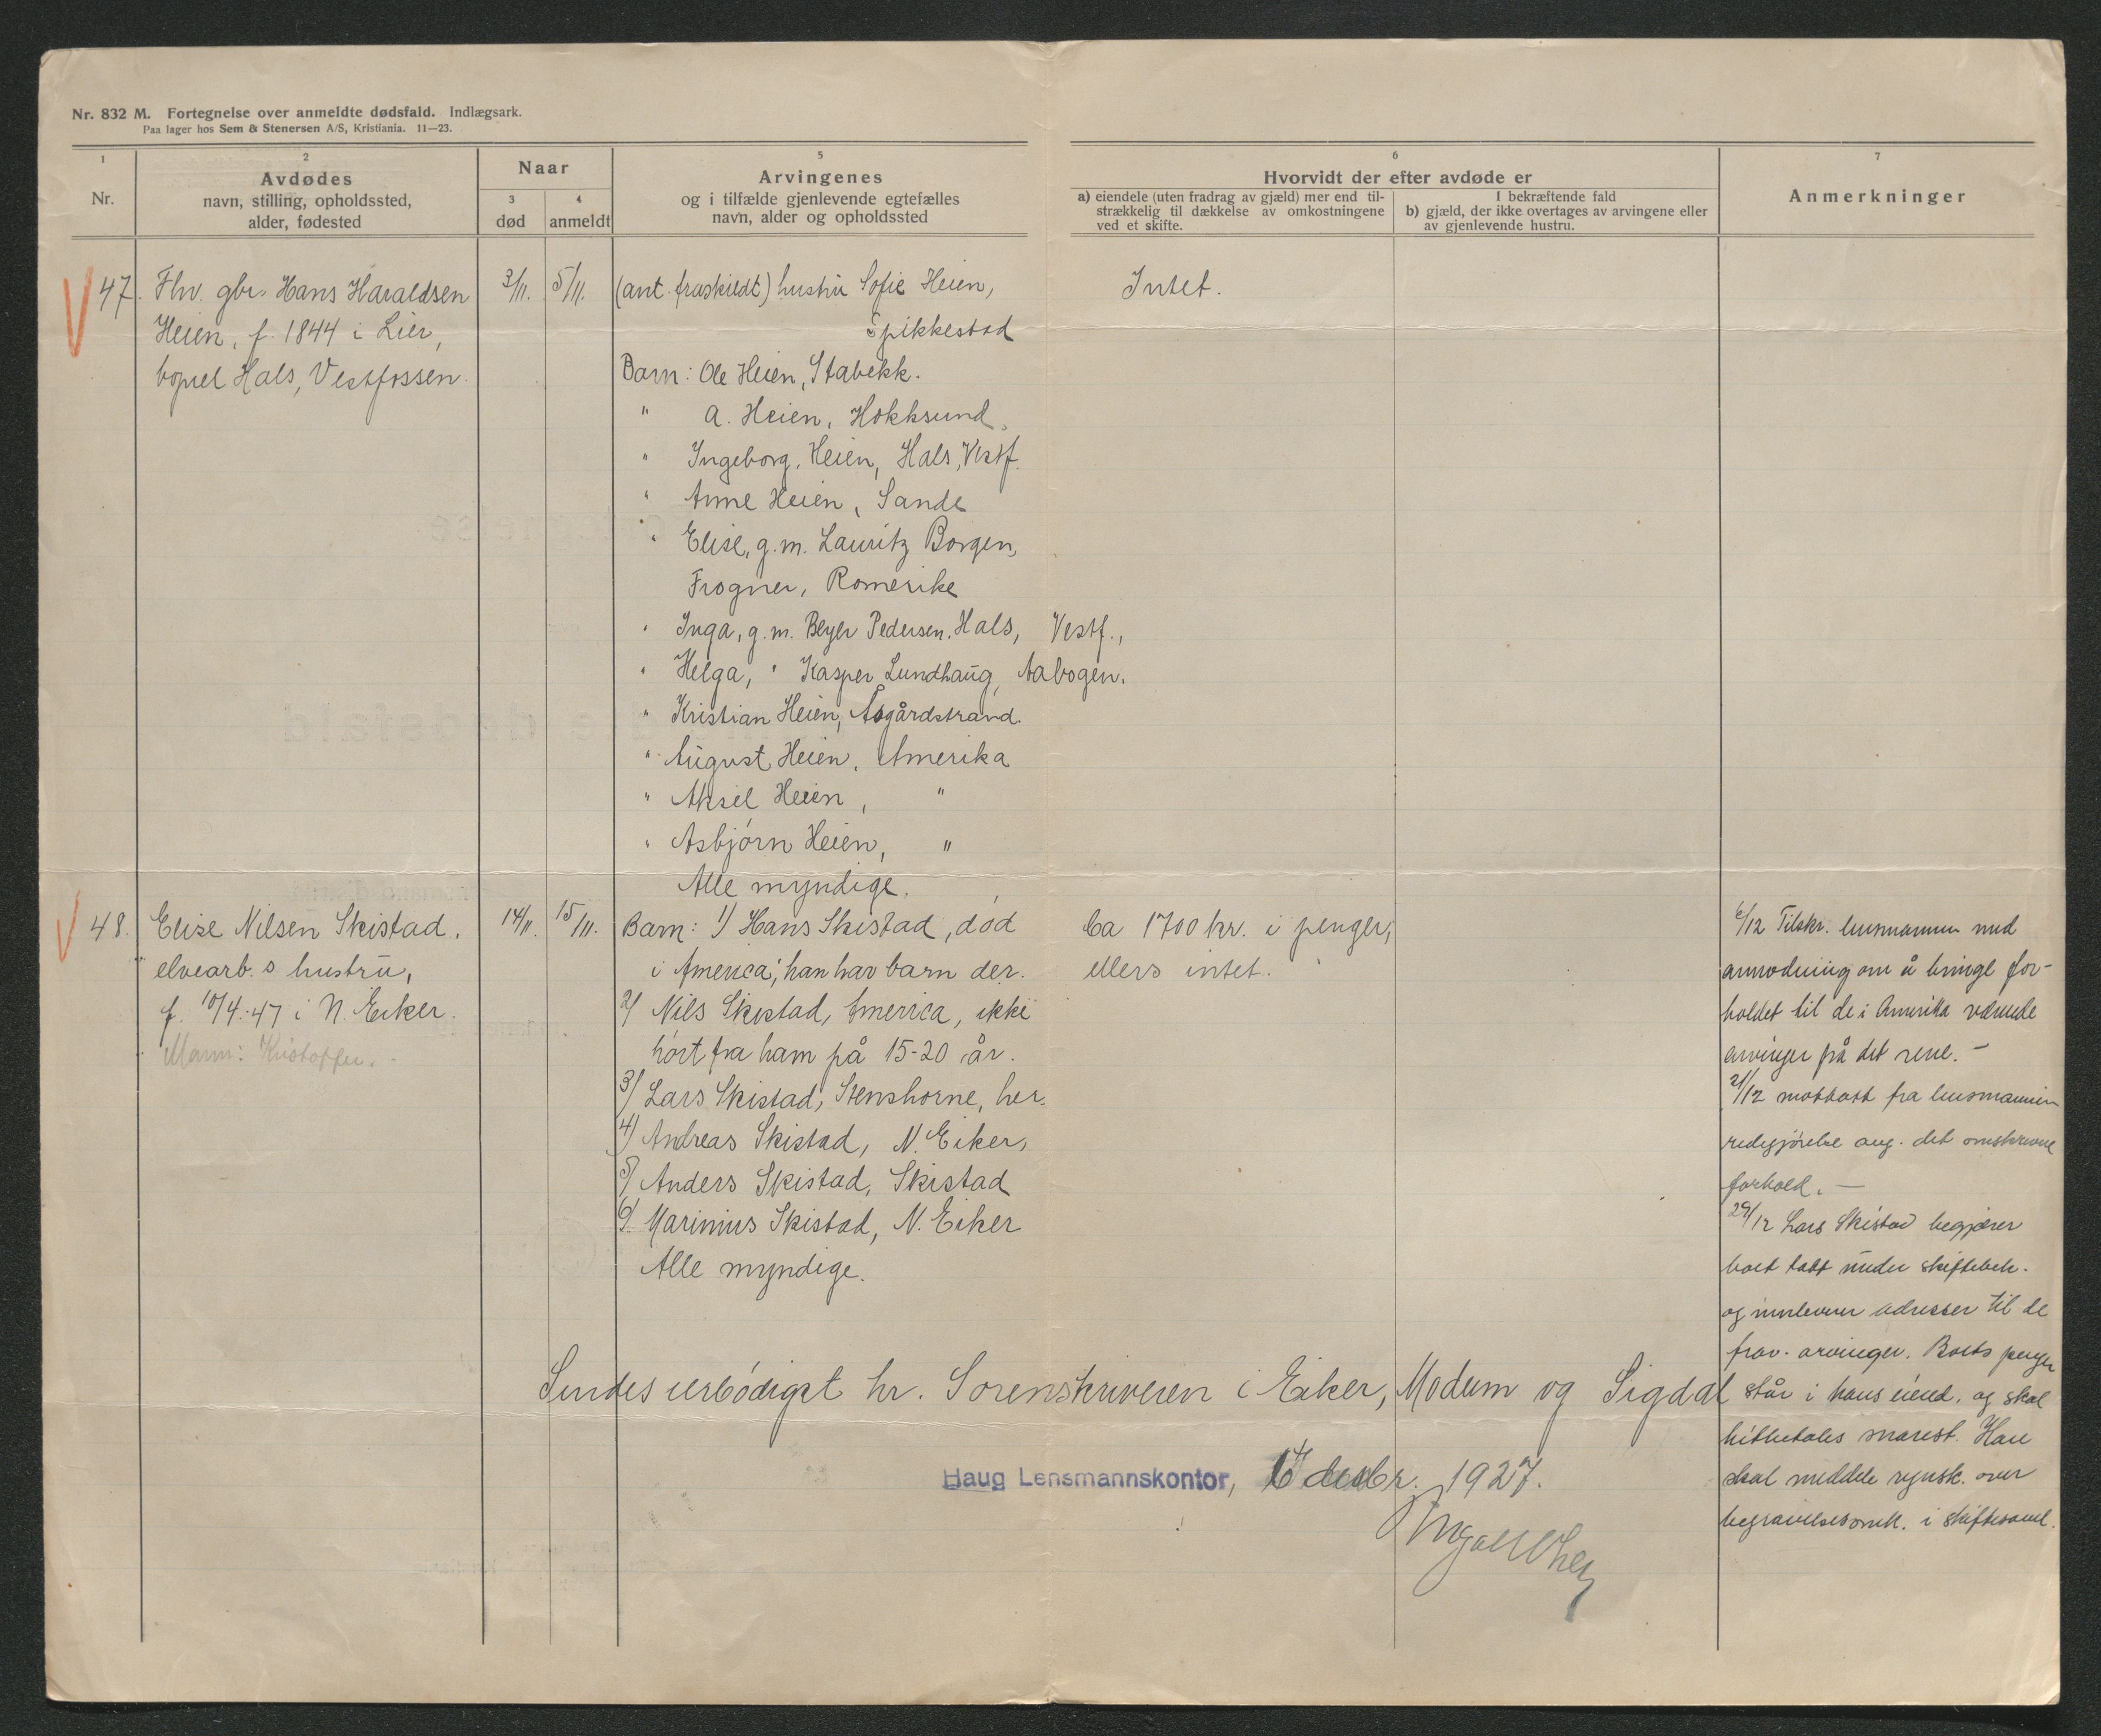 Nr. 832 M. Fortegnelse over anmeldte dødsfald. Indlægsark.
Paa lager hos Sem & Stenersen A/S, Kristiania. 11—23.
1
Nr.
2
Avdødes
navn, stilling, opholdssted,
alder, fødested
Naar
3
død
4
anmeldt
5
Arvingenes
og i tilfælde gjenlevende egtefælles
navn, alder og opholdssted
6
Hvorvidt der efter avdøde er
a) eiendele (uten fradrag av gjæld) mer end til-
strækkelig til dækkelse av omkostningene
ved et skifte.
I bekræftende fald
b) gjæld, der ikke overtages av arvingene eller
av gjenlevende hustru.
7
Anmerkninger
47. Fhv. gbr. Hans Haraldsen
Heien, f. 1844 i Lier,
bopæl Hals, Vestfossen.
3/11. 5/11.
(ant. fraskildt) hustru Sofie Heien,
Spikkestad
Barn: Ole Heien, Stabekk.
" A. Heien, Hokksund.
" Ingeborg Heien, Hals, Vestf.
" Anne Heien, Sande
" Elise, g.m. Lauritz Borgen,
Frogner, Romerike
" Inga, g.m. Beyer Pedersen, Hals, Vestf.,
" Helga, " Kasper Lundhaug, Aabogen.
" Kristian Heien, Åsgårdstrand.
" August Heien, Amerika
" Aksel Heien, "
" Asbjørn Heien, "
Alle myndige.
Intet.
48. Elise Nilsen Skistad,
elvearb.s hustru,
f. 10/4-47 i N. Eiker.
Mann: Kristoffer. -
14/11. 15/11.
Barn: 1) Hans Skistad, død
i America; han har barn der.
2) Nils Skistad, America, ikke
hørt fra ham på 15-20 år.
3) Lars Skistad, Stenshorne, her.
4) Andreas Skistad, N. Eiker,
5) Anders Skistad, Skistad
6) Marinius Skistad, N. Eiker
Alle myndige.
Ca 1700 kr. i penger,
ellers intet.
6/12 Tilskr. lensmannen med
anmodning om å bringe for-
holdet til de i Amerika værende
arvinger på det rene. -
21/12 mottatt fra lensmannen
redegjørelse ang. det omskrevne
forhold. —
29/12 Lars Skistad begjærer
boet tatt under skiftebeh.
og innleverer adresser til de
frav. arvinger. Boets penger
står i hans eiend. og skal
hitbetales snarest. Han
skal meddele regnsk. over
begravelsesomk. i skiftesaml.
Sendes ærbødigst hr. Sorenskriveren i Eiker, Modum og Sigdal
Haug Lensmannskontor, desbr. 1927.